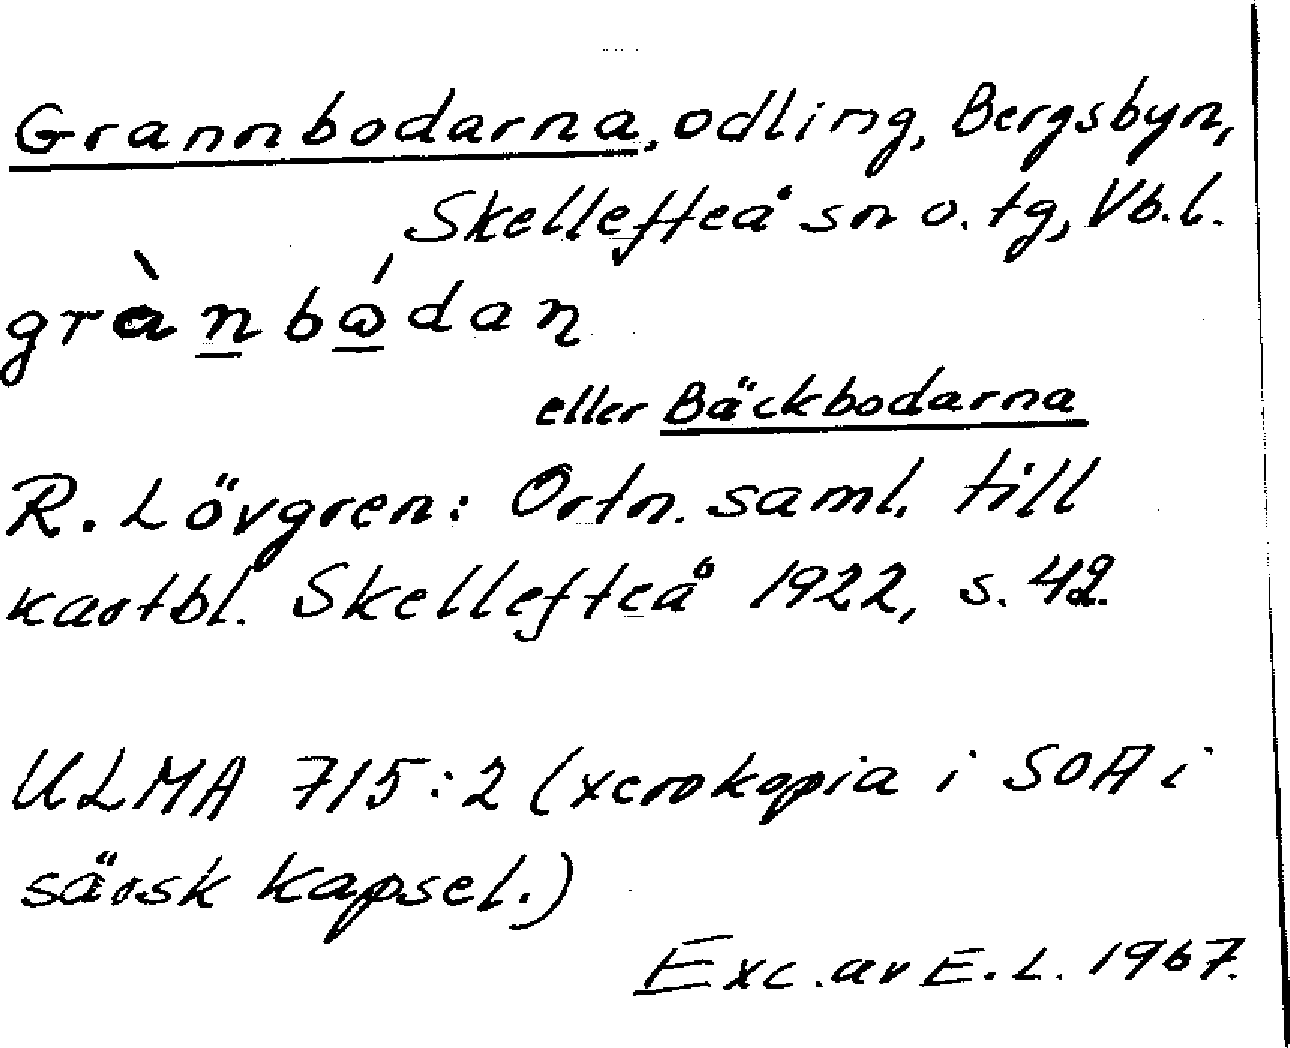 Grannbodarna, odling, Bergsbyn,
Skellefteå sn o. tg, Vb.l.
grànbǻdan
eller Bäckbodarna
R. Lövgren: Ortn. saml. till
kartbl. Skellefteå 1922, s. 42.
ULMA 715:2 (xerokopia i SOA i
särsk kapsel.)
Exc. av E. L. 1967.